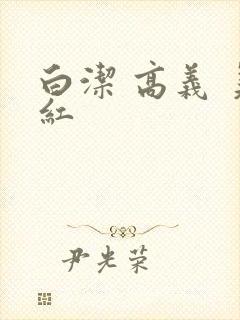 白潔 高義
紅
尹光荣